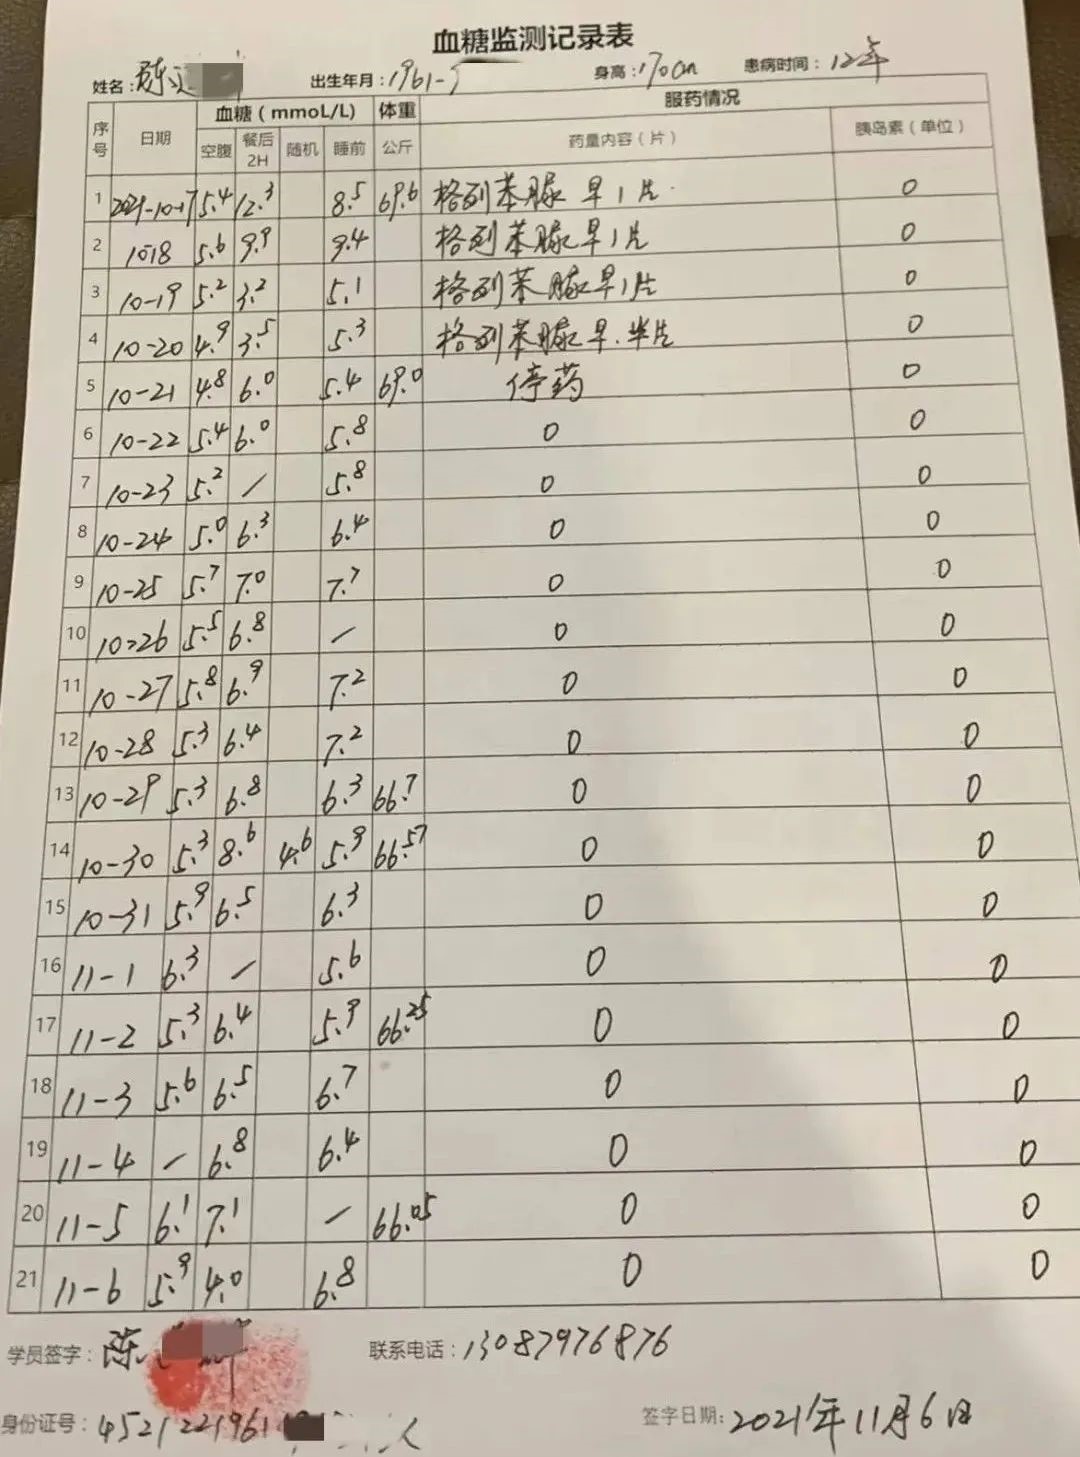 血糖监测记录表
姓名: 陈 出生年月: 1961- 身高: 170cm 患病时间: 12年
序号 日期 血糖(mmoL/L) 体重 服药情况
空腹 餐后2H 随机 睡前 公斤 药量内容(片) 胰岛素(单位)
1 2021-10-17 5.4 12.3 8.5 69.6 格列苯脲 早1片. 0
2 10-18 5.6 9.9 9.4 格列苯脲早1片 0
3 10-19 5.2 3.2 5.1 格列苯脲早1片 0
4 10-20 4.9 3.5 5.3 格列苯脲早.半片 0
5 10-21 4.8 6.0 5.4 69.0 停药 0
6 10-22 5.4 6.0 5.8 0 0
7 10-23 5.2 / 5.8 0 0
8 10-24 5.0 6.3 6.4 0 0
9 10-25 5.7 7.0 7.7 0 0
10 10-26 5.5 6.8 / 0 0
11 10-27 5.8 6.9 7.2 0 0
12 10-28 5.3 6.4 7.2 0 0
13 10-29 5.3 6.8 6.3 66.7 0 0
14 10-30 5.3 8.6 4.6 5.9 66.57 0 0
15 10-31 5.9 6.5 6.3 0 0
16 11-1 6.3 / 5.6 0 0
17 11-2 5.3 6.4 5.9 66.25 0 0
18 11-3 5.6 6.5 6.7 0 0
19 11-4 / 6.8 6.4 0 0
20 11-5 6.1 7.1 / 66.05 0 0
21 11-6 5.9 4.0 6.8 0 0
学员签字: 陈 联系电话: 13087976876
身份证号: 4521221961 签字日期: 2021年11月6日